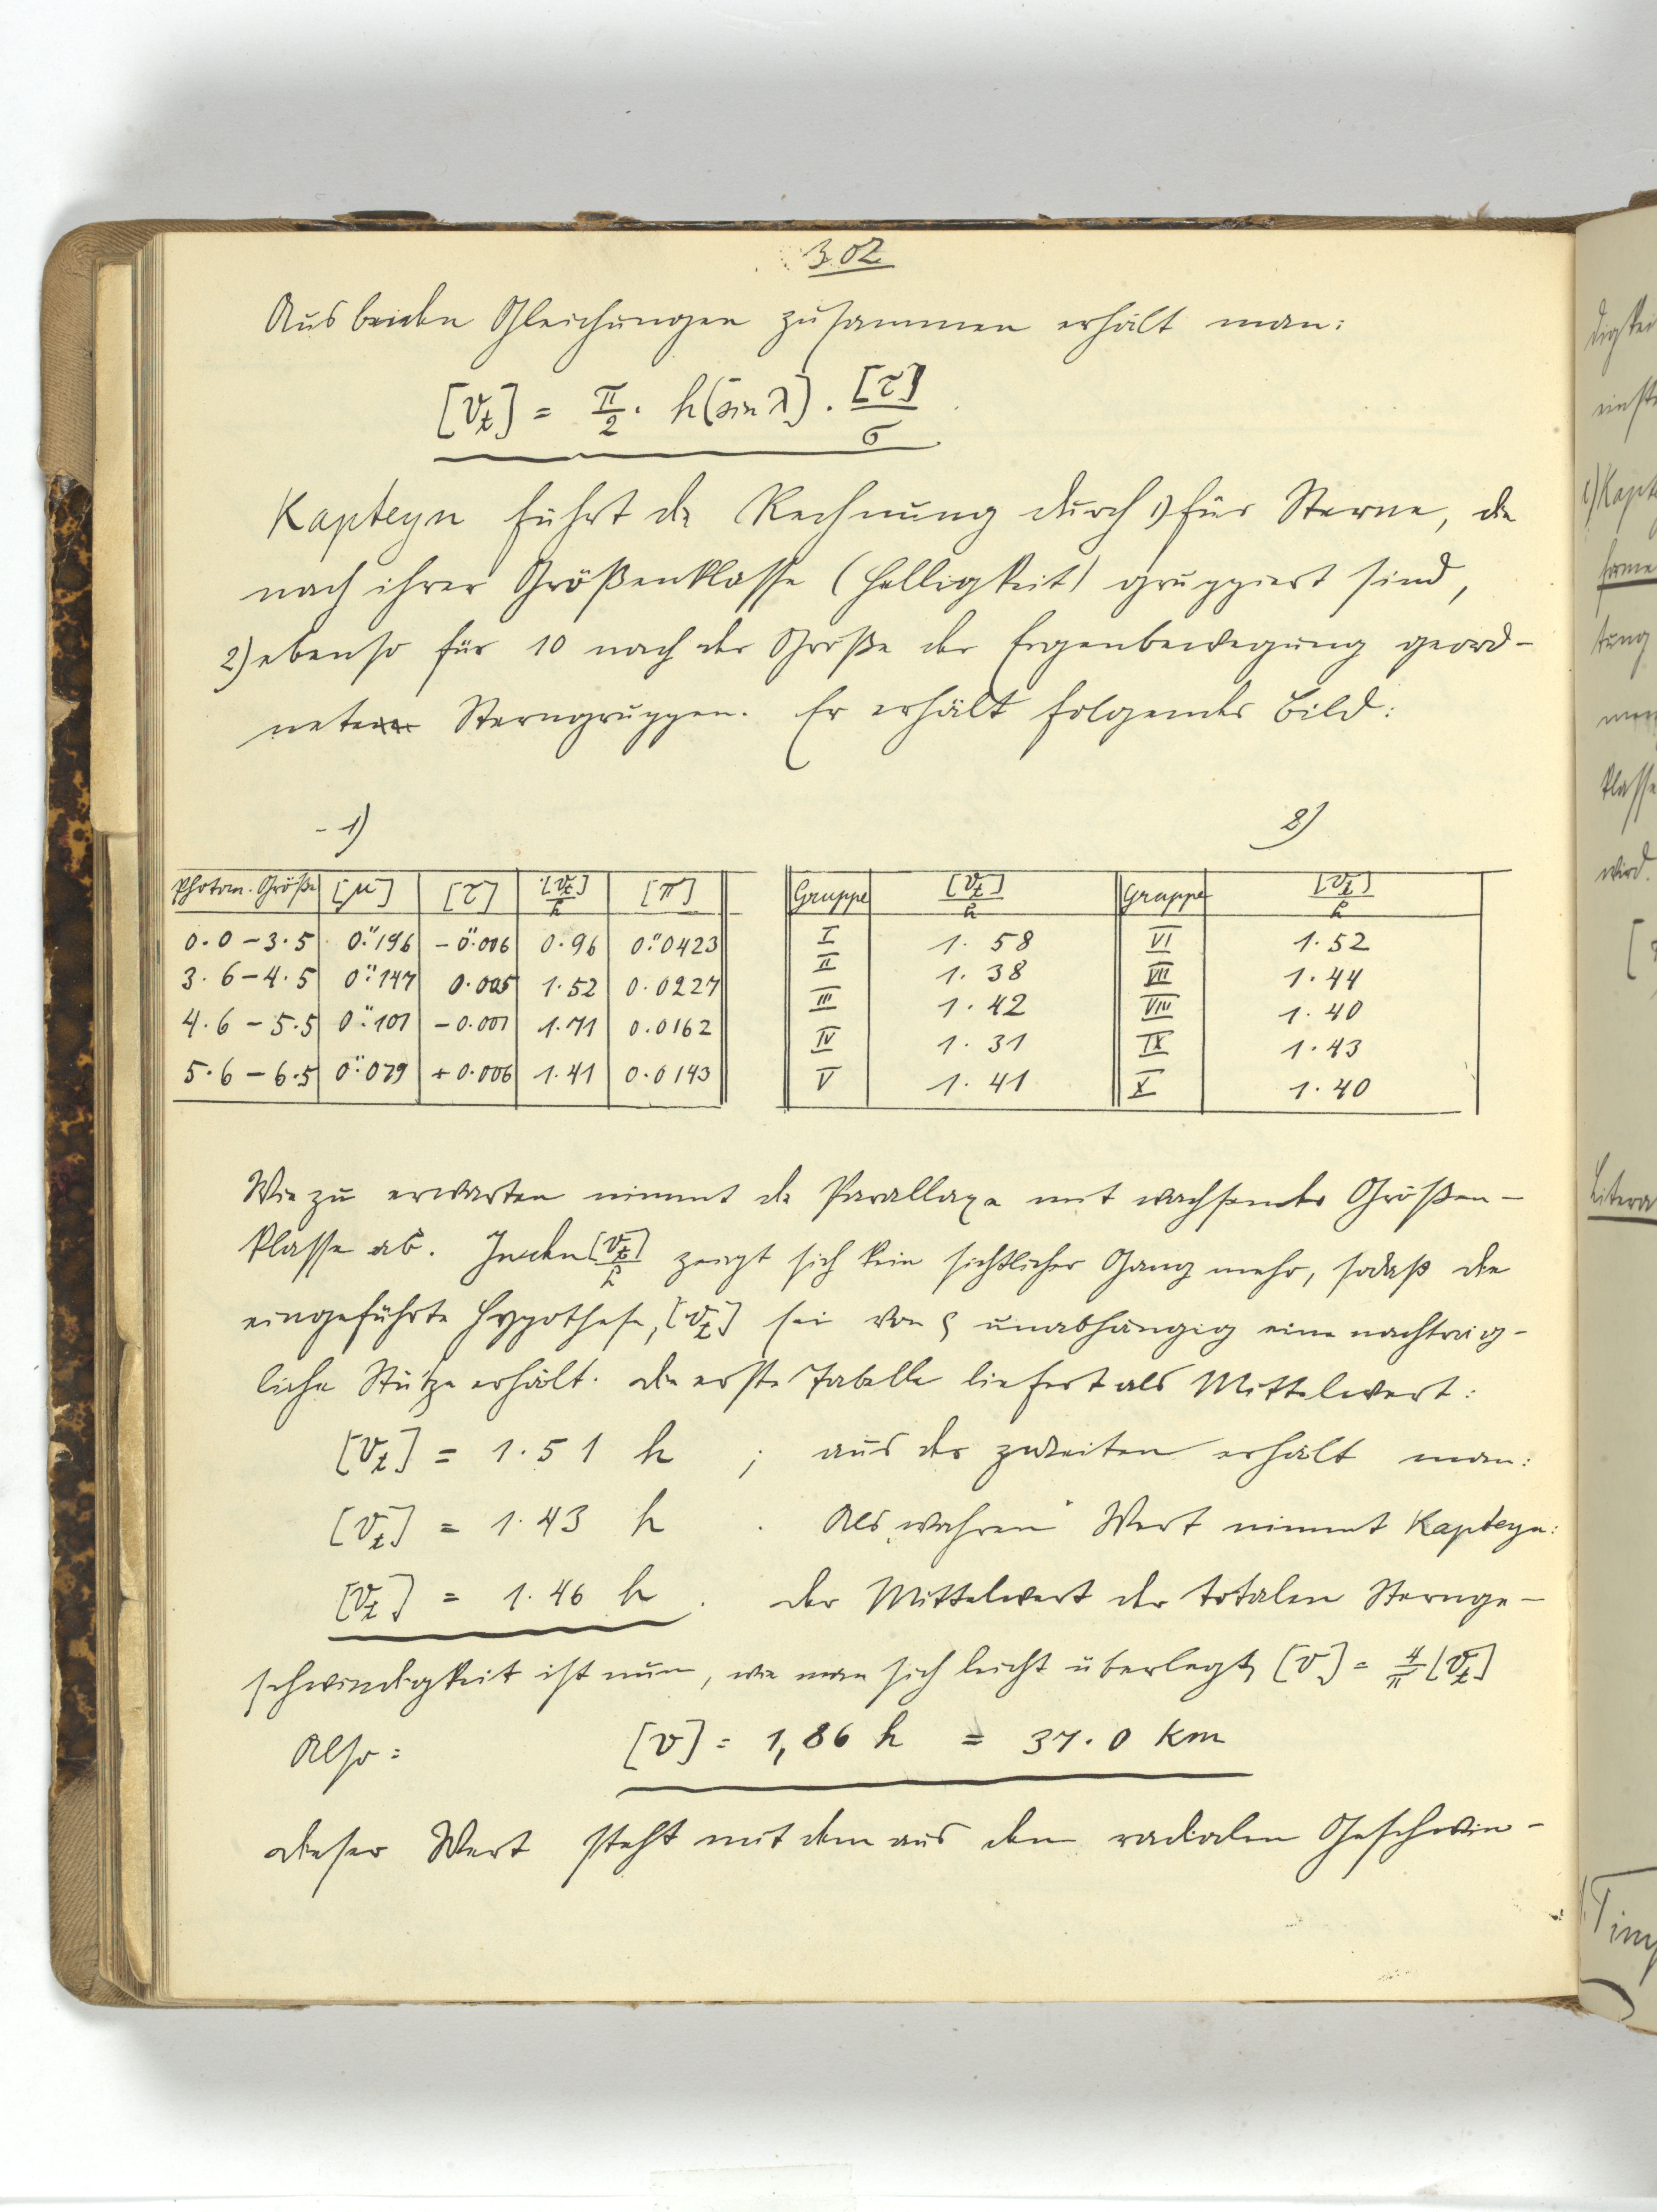 302
Aus beiden Gleichungen zusammen erhält man:
[v_t] = π/2 · h[sin λ] · [τ]/σ
Kapteyn führt die Rechnung durch 1) für Sterne, die
nach ihrer Größenklasse (Helligkeit) gruppiert sind,
2) ebenso für 10 nach der Größe der Eigenbewegung geord-
nete Sterngruppen. Er erhält folgendes Bild:
1) 2)
Photom. Größe [μ] [τ] [v_t]/h [π] Gruppe [v_t]/h Gruppe [v_t]/h
0.0 – 3.5 0."196 –0."006 0.96 0."0423 I 1.58 VI 1.52
3.6 – 4.5 0."147 0.005 1.52 0.0227 II 1.38 VII 1.44
4.6 – 5.5 0."101 –0.001 1.71 0.0162 III 1.42 VIII 1.40
5.6 – 6.5 0."079 +0.006 1.41 0.0143 IV 1.31 IX 1.43
V 1.41 X 1.40
Wie zu erwarten nimmt die Parallaxe mit wachsender Größen-
klasse ab. In den [v_t]/h zeigt sich kein sichtlicher Gang mehr, sodaß die
eingeführte Hypothese, [v_t] sei von ϱ unabhängig eine nachträg-
liche Stütze erhält. Die erste Tabelle liefert als Mittelwert:
[v_t] = 1.51 h ; aus der zweiten erhält man:
[v_t] = 1.43 h . Als „wahren“ Wert nimmt Kapteyn:
[v_t] = 1.46 h . Der Mittelwert der totalen Sternge-
schwindigkeit ist nun, wie man sich leicht überlegt, [v] = 4/π [v_t]
Also: [v] = 1,86 h = 37.0 km
Dieser Wert steht mit dem aus den radialen Geschwin-